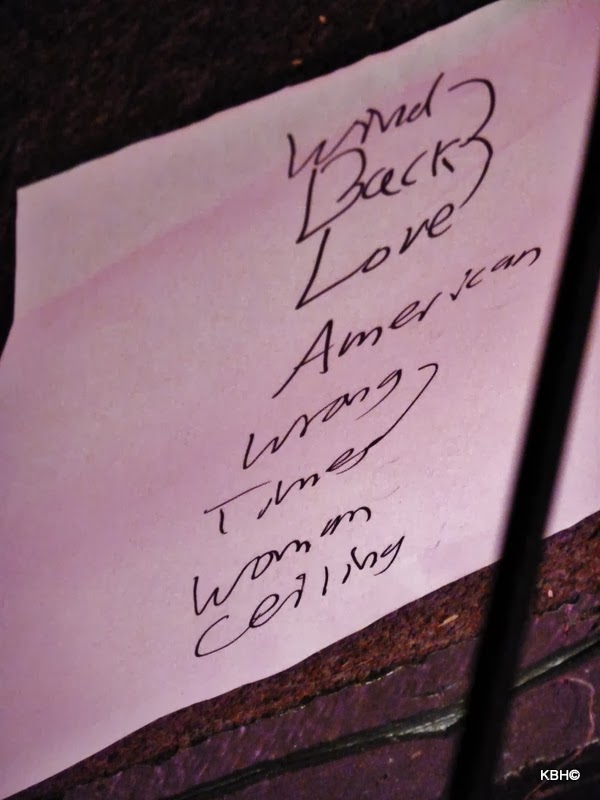 Wind
Back
Love
American
Wrong
Times
Woman
Ceiling
KBH©